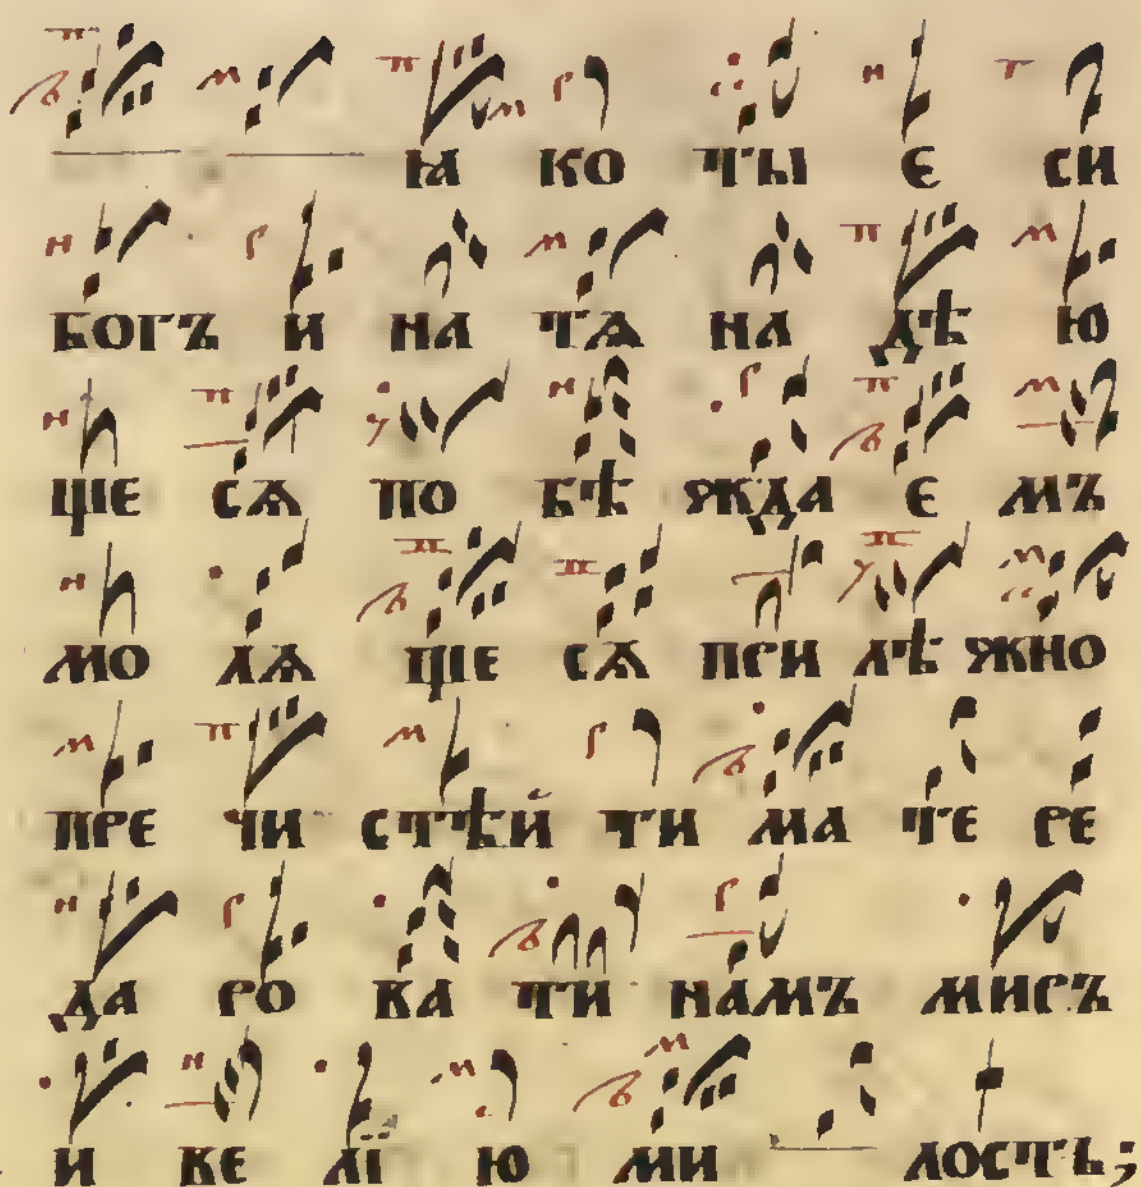 ꙗ ко ты є си
богъ и на тѧ на дѣ ю
щїе сѧ по бѣ жда є мъ
мо лѧ щїе сѧ при лѣ жно
пре чи стѣй ти ма те ре
да ро ва ти намъ миръ
и ве лї ю ми лость;